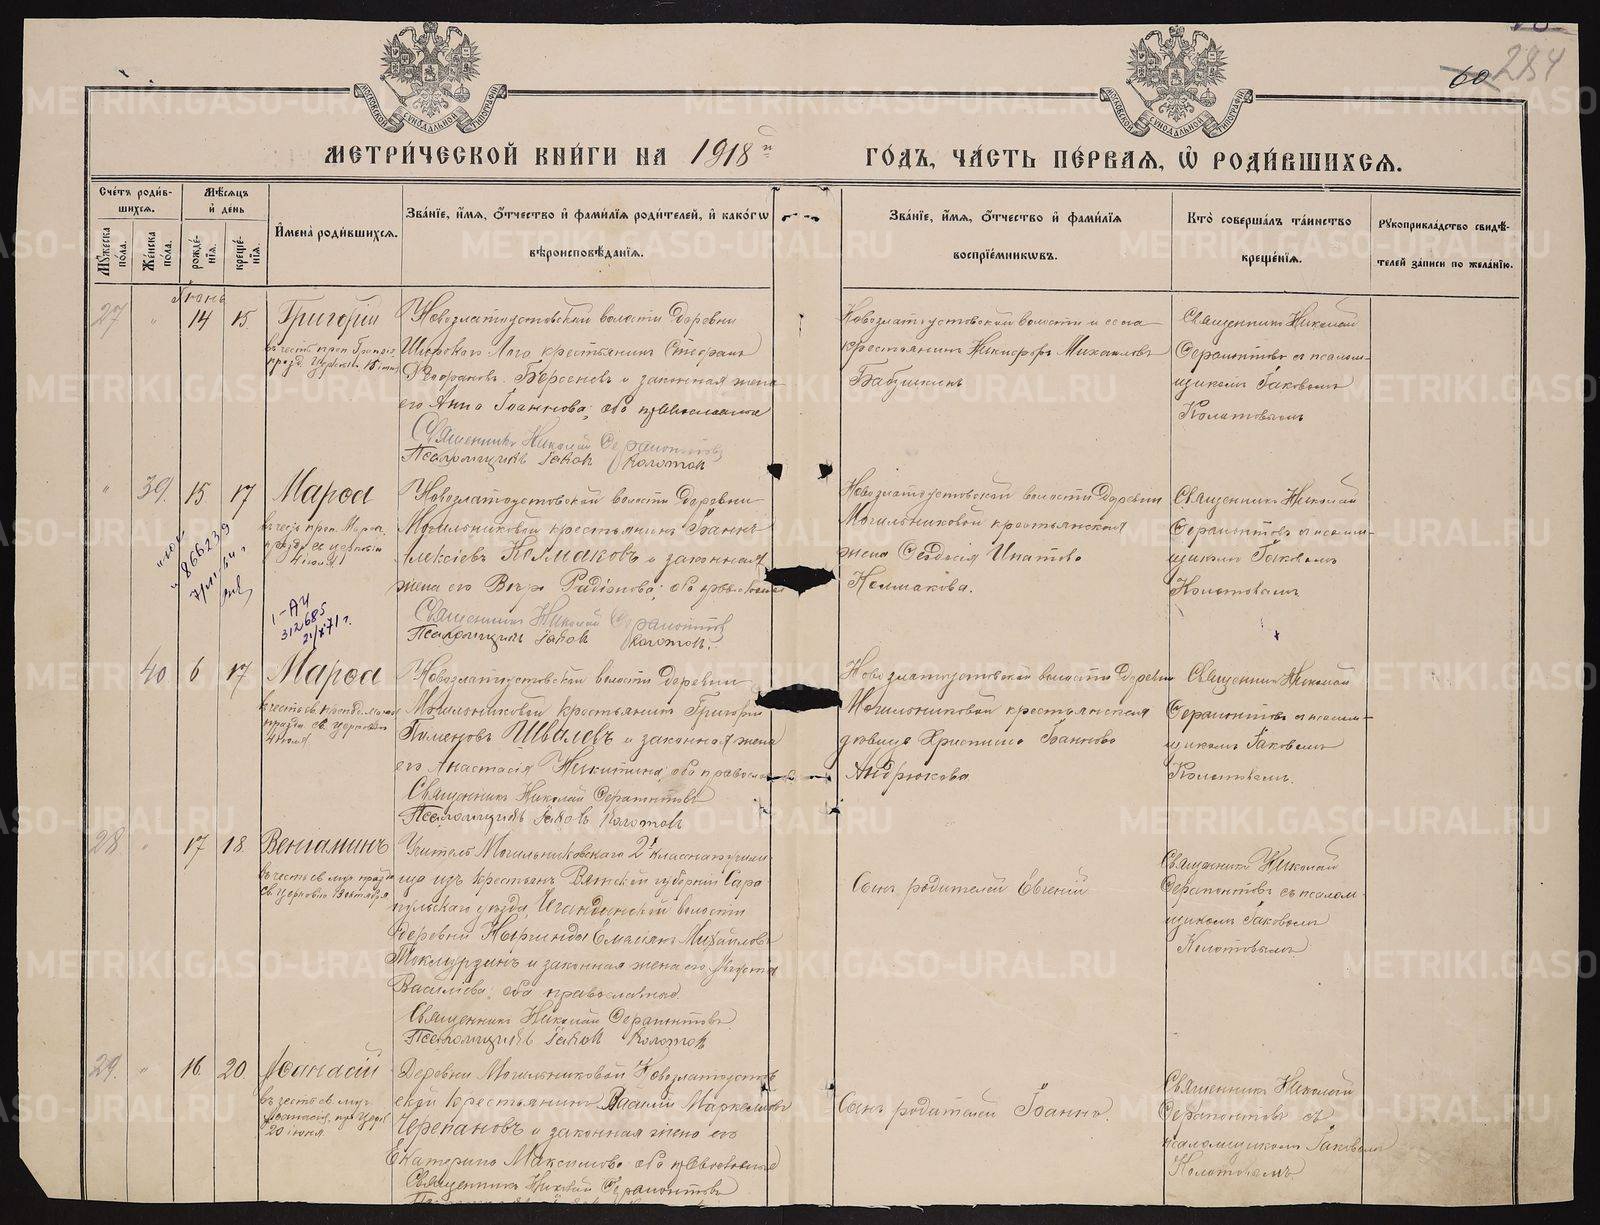 284
60
МОСКОВСКОЙ СУНОДАЛЬНОЙ ТИПОГРАФІИ
МОСКОВСКОЙ СУНОДАЛЬНОЙ ТИПОГРАФІИ
МЕТРИ́ЧЕСКОЙ КНИ́ГИ НА 1918 й
ГО́ДЪ, ЧА́СТЬ ПЕ́РВАЯ, Ѡ҆ РОДИ́ВШИХСЯ.
Сче́тъ роди́в-
шихся.
Мѣ́сяцъ
и҆ де́нь
Му́жеска по́ла.
Же́нска по́ла.
рожде́-
нїя.
креще́-
нїя.
И҆мена̀ роди́вшихся.
Зва́нїе, и҆́мя, ѻ҆́тчество и҆ фами́лїя роди́телей, и҆ како́гѡ
вѣроисповѣ́данїя.
Зва́нїе, и҆́мя, ѻ҆́тчество и҆ фами́лїя
воспрїе́мникѡвъ.
Кто̀ соверша́лъ та́инство
креще́нїя.
Рꙋкоприкла́дство свидѣ́-
телей за́писи по жела́нїю.
Іюнь
27 " 14 15 Григорій
Новозлатоустовской волости деревни
Широкаго Лога крестьянинъ Стефанъ
Берсеневъ и законная жена
его Анна Іоаннова; оба православные
Священникъ Николай Ферапонтовъ
Псаломщикъ Іаковъ Колотовъ
Новозлатоустовской волости и села
крестьянинъ Никифоръ Михайловъ
Бабушкинъ
Священникъ Николай
Ферапонтовъ с псалом-
щикомъ Іаковомъ
Колотовымъ
" 39. 15 17 Марѳа
въ честь преп. Марѳы,
4 июля
866239
1-АЧ
312685
21/X 71 г.
Новозлатоустовской волости деревни
Могильниковой крестьянинъ Іоаннъ
Алексіевъ Колмаковъ и законная
жена его Вера Радіонова; оба православные
Священникъ Николай Ферапонтов
Псаломщикъ Іаков Колотов.
Новозлатоустовской волости деревни
Могильниковой крестьянская
жена Ѳеодосія Ипатова
Колмакова.
Священникъ Николай
Ферапонтовъ с псалом-
щикомъ Іаковомъ
Колотовымъ
40 6 17 Марѳа
4 июля
Новозлатоустовской волости деревни
Могильниковой крестьянинъ Григорій
Пименовъ Швалевъ и законная жена
его Анастасія Никитина; оба православ
Священникъ Николай Ферапонтовъ
Псаломщикъ Іаковъ Колотовъ
Новозлатоустовской волости деревни
Могильниковой крестьянская
девица Христина Іоаннова
Андрюкова
Священникъ Николай
Ферапонтовъ с псалом-
щикомъ Іаковомъ
Колотовымъ.
28 " 17 18 Веніаминъ
въ честь св. муч. празд
св. церковію 13 октября
Учитель Могильниковскаго 2х класснаго учили-
ща изъ крестьянъ Вятской губерніи Сара-
пульскаго уезда,
деревни Емеліянъ Михайловъ
и законная жена его Августа
Василіева; оба православные.
Священникъ Николай Ферапонтовъ
Псаломщикъ Іаков Колотов
Сынъ родителей Евгеній
Священникъ Николай
Ферапонтовъ съ псалом-
щикомъ Іаковомъ
Колотовымъ
29. " 16 20 Аѳанасій
въ честь св. муч.
20 іюня.
Деревни Могильниковой Новозлатоустов-
ской крестьянинъ Василій Маркеловъ
Черепановъ и законная жена его
Екатерина Максимова оба православные
Священникъ Николай Ферапонтовъ
Сынъ родителей Іоаннъ.
Священникъ Николай
Ферапонтовъ съ
псаломщикомъ Іаковомъ
Колотовымъ